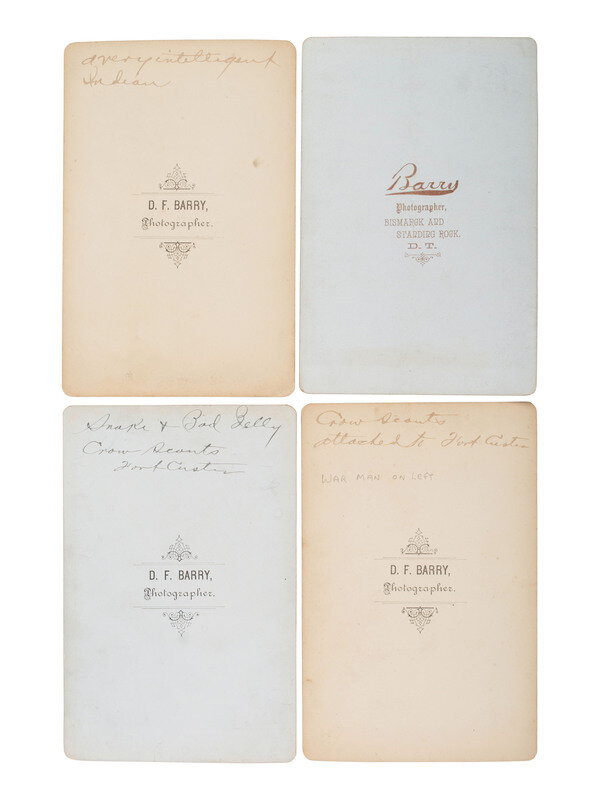 a very intelligent
Indian
D. F. BARRY,
Photographer.
Barry
Photographer,
BISMARCK AND
STANDING ROCK,
D. T.
Snake & Bad Belly
Crow Scouts
Fort Custer
D. F. BARRY,
Photographer.
Crow Scouts
attached to Fort Custer
WAR MAN ON LEFT
D. F. BARRY,
Photographer.